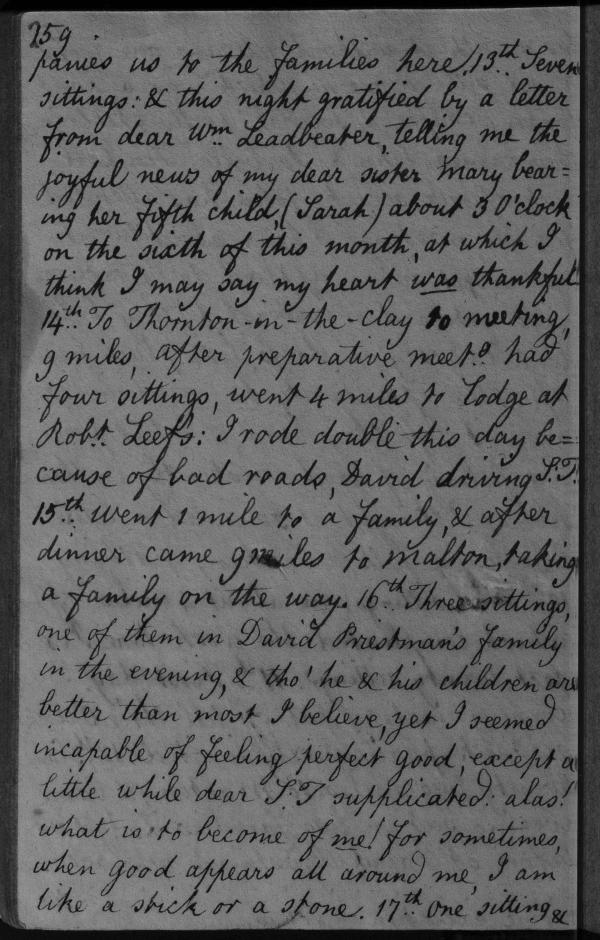 259
panies us to the families here. 13th.. Seven
sittings: & this night gratified by a letter
from dear Wm. Leadbeater, telling me the
joyful news of my dear sister Mary bear=
ing her fifth child, (Sarah) about 3 O'clock
on the sixth of this month, at which I
think I may say my heart was thankful
14th.. To Thornton-in-the-clay to meeting,
9 miles, after preparative meetg. had
four sittings, went 4 miles to lodge at
Robt. Leefs: I rode double this day be=
cause of bad roads, David driving S.T.
15th.. went 1 mile to a family, & after
dinner came 9 miles to Malton, taking
a family on the way. 16th.. Three sittings,
one of them in David Priestman's family
in the evening, & tho' he & his children are
better than most I believe, yet I seemed
incapable of feeling perfect good, except a
little while dear S.T supplicated: alas!
what is to become of me! for sometimes,
when good appears all around me, I am
like a stick or a stone. 17th.. One sitting &